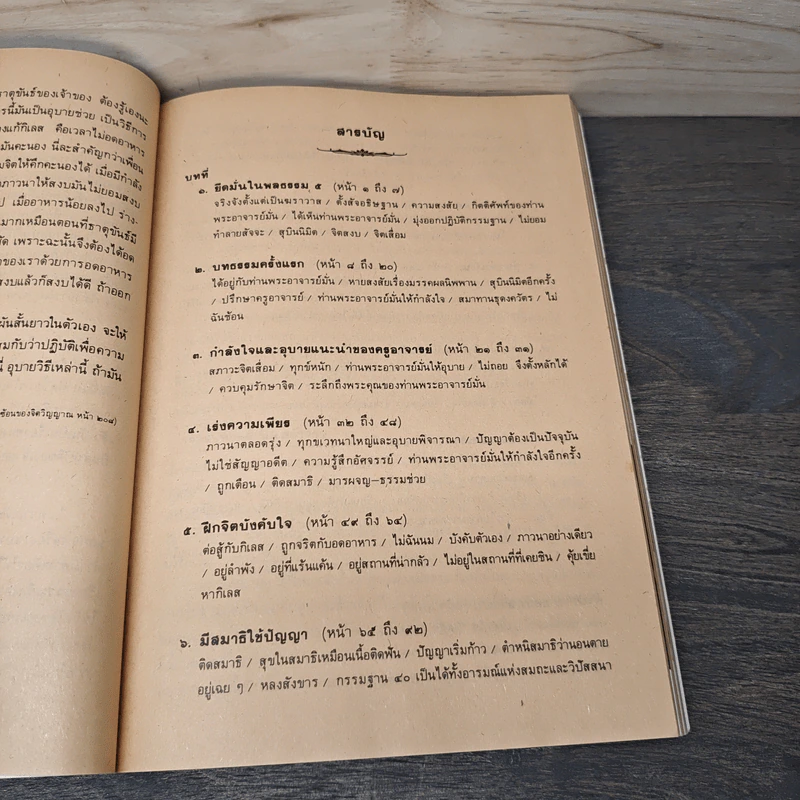 ธาตุขันธ์ของเจ้าของ ต้องรู้เองนะ
รนี้มันเป็นอุบายช่วย เป็นวิธีการ
งแก้กิเลส คือเวลาไม่อดอาหาร
มันคะนอง นี่ละสำคัญกว่าเพื่อน
มจิตให้คึกคะนองได้ เมื่อมีกำลัง
ภาวนาให้สงบมันไม่ยอมสงบ
ป เมื่ออาหารน้อยลงไป ร่าง-
มากเหมือนตอนที่ธาตุขันธ์มี
ัด เพราะฉะนั้นจึงต้องได้อด
ของเราด้วยการอดอาหาร
สงบแล้วก็สงบได้ดี ถ้าออก
ผันสั้นยาวในตัวเอง จะให้
รมกับว่าปฏิบัติเพื่อความ
อุบายวิธีเหล่านี้ ถ้ามัน
ซ้อนของจิตวิญญาณ หน้า ๒๐๔)
สารบัญ
บทที่
๑. ยึดมั่นในพลธรรม ๕ (หน้า ๑ ถึง ๗)
จริงจังตั้งแต่เป็นฆราวาส / ตั้งสัจอธิษฐาน / ความสงสัย / กิตติศัพท์ของท่าน
พระอาจารย์มั่น / ได้เห็นท่านพระอาจารย์มั่น / มุ่งออกปฏิบัติกรรมฐาน / ไม่ยอม
ทำลายสัจจะ / สุบินนิมิต / จิตสงบ / จิตเสื่อม
๒. บทธรรมครั้งแรก (หน้า ๘ ถึง ๒๐)
ได้อยู่กับท่านพระอาจารย์มั่น / หายสงสัยเรื่องมรรคผลนิพพาน / สุบินนิมิตอีกครั้ง
/ ปรึกษาครูอาจารย์ / ท่านพระอาจารย์มั่นให้กำลังใจ / สมาทานธุดงควัตร / ไม่
ฉันซ้อน
๓. กำลังใจและอุบายแนะนำของครูอาจารย์ (หน้า ๒๑ ถึง ๓๑)
สภาวะจิตเสื่อม / ทุกข์หนัก / ท่านพระอาจารย์มั่นให้อุบาย / ไม่ถอย จึงตั้งหลักได้
/ ควบคุมรักษาจิต / ระลึกถึงพระคุณของท่านพระอาจารย์มั่น
๔. เร่งความเพียร (หน้า ๓๒ ถึง ๔๘)
ภาวนาตลอดรุ่ง / ทุกขเวทนาใหญ่และอุบายพิจารณา / ปัญญาต้องเป็นปัจจุบัน
ไม่ใช่สัญญาอดีต / ความรู้สึกอัศจรรย์ / ท่านพระอาจารย์มั่นให้กำลังใจอีกครั้ง
/ ถูกเตือน / ติดสมาธิ / มารผจญ-ธรรมช่วย
๕. ฝึกจิตบังคับใจ (หน้า ๔๙ ถึง ๖๔)
ต่อสู้กับกิเลส / ถูกจริตกับอดอาหาร / ไม่ฉันนม / บังคับตัวเอง / ภาวนาอย่างเดียว
/ อยู่ลำพัง / อยู่ที่แร้นแค้น / อยู่สถานที่น่ากลัว / ไม่อยู่ในสถานที่ที่เคยชิน / คุ้ยเขี่ย
หากิเลส
๖. มีสมาธิใช้ปัญญา (หน้า ๖๕ ถึง ๙๒)
ติดสมาธิ / สุขในสมาธิเหมือนเนื้อติดฟัน / ปัญญาเริ่มก้าว / ตำหนิสมาธิว่านอนตาย
อยู่เฉย ๆ / หลงสังขาร / กรรมฐาน ๔๐ เป็นได้ทั้งอารมณ์แห่งสมถะและวิปัสสนา